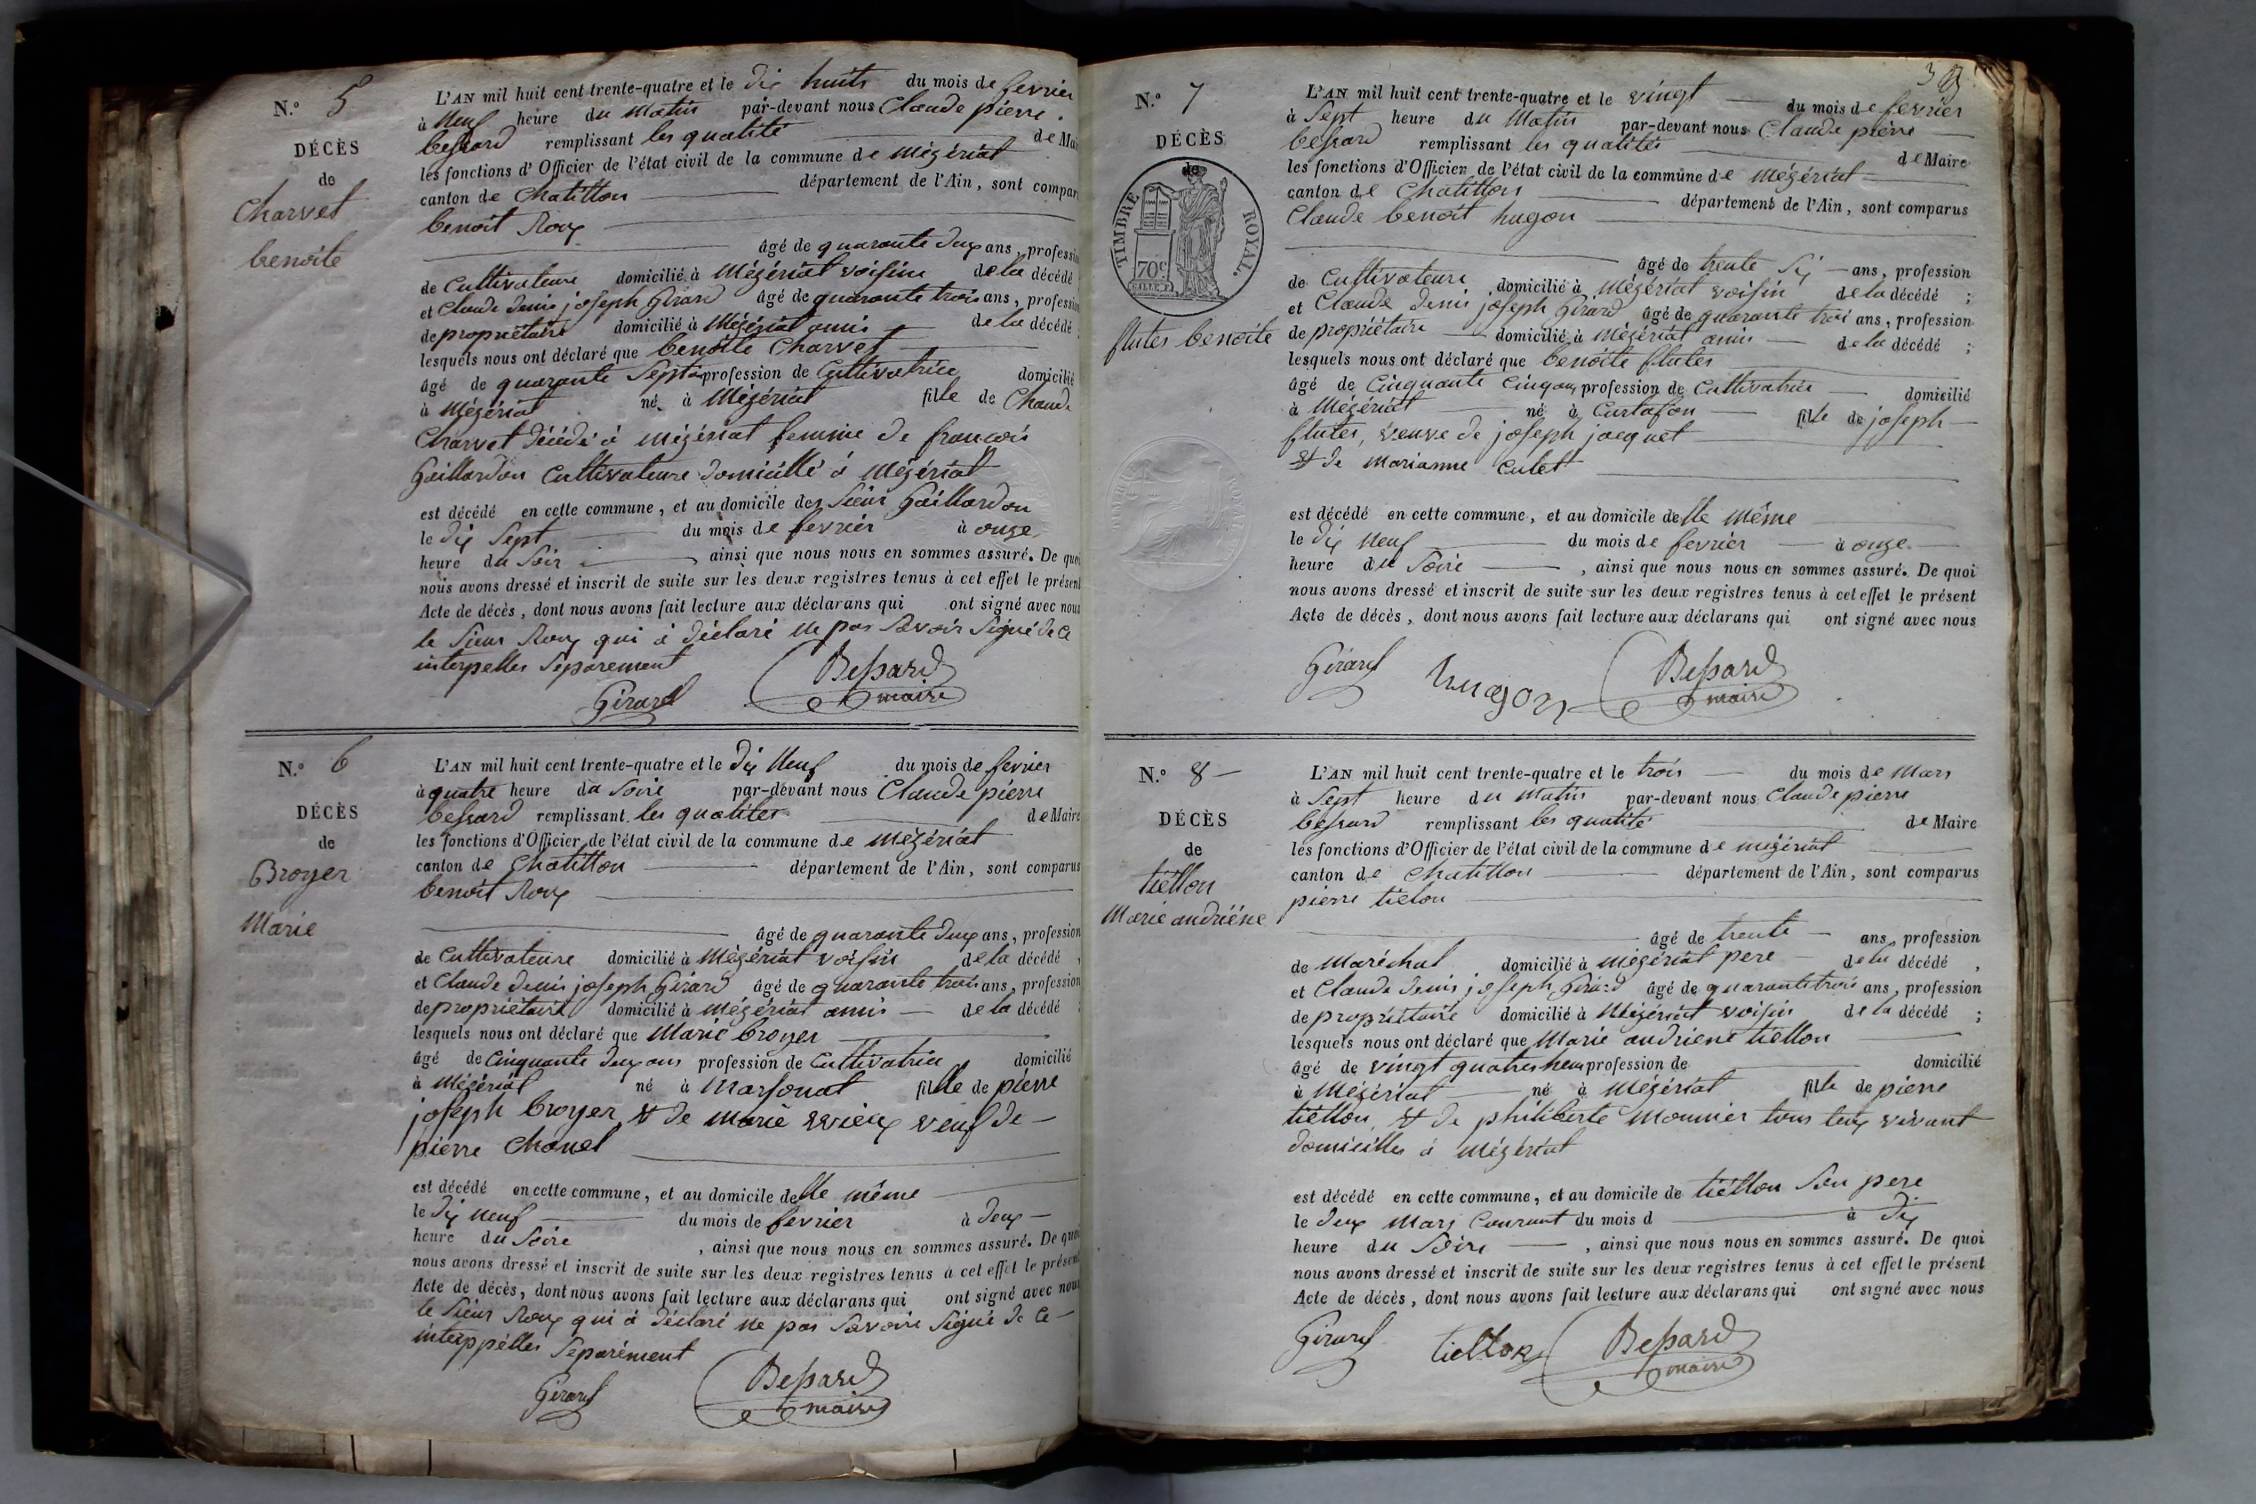 N.° 5
DÉCÈS
de
Charvet
benoite
L'AN mil huit cent trente-quatre et le dix huits du mois de fevrier
à Neuf heure du Matin par-devant nous Claude pierre
bessard remplissant les qualité de Mai
les fonctions d'Officier de l'état civil de la commune de Mézériat
canton de Chatillon département de l'Ain, sont compar
benoit Roux
âgé de quarante deux ans, professi
de Cultivateure domicilié à Mézériat voisin de la décédé
et Claude denis joseph Girard âgé de quarante trois ans, professi
de propriétaire domicilié à Mézériat amis de la décédé
lesquels nous ont déclaré que benoitte Charvet
âgé de quarante Sept a profession de Cultivatrice domicilié
à Mézériat né à Mézériat fille de Claude
Charvet décédé à Mézériat femme de francois
Gaillardon Cultivateure domicillé à Mézériat
est décédé en cette commune, et au domicile de Sieur Gaillardon
le dix Sept du mois de fevrier à onze
heure du Soir ainsi que nous nous en sommes assuré. De quoi
nous avons dressé et inscrit de suite sur les deux registres tenus à cet effet le présen
Acte de décès, dont nous avons fait lecture aux déclarans qui ont signé avec nous
le Sieur Roux qui à déclaré ne pas Savoir Signé de ce
interpelles Séparement
Girard Bessard maire
N.° 6
DÉCÈS
de
Broyer
Marie
L'AN mil huit cent trente-quatre et le dix Neuf du mois de fevrier
à quatre heure du Soire par-devant nous Claude pierre
bessard remplissant les qualites de Maire
les fonctions d'Officier de l'état civil de la commune de Mézériat
canton de Chatillon département de l'Ain, sont comparus
benoit Roux
âgé de quarante deux ans, profession
de Cultivateure domicilié à Mézériat voisin de la décédé
et Claude denis joseph Girard âgé de quarante trois ans, profession
de propriétaire domicilié à Mézériat amis de la décédé
lesquels nous ont déclaré que Marie broyer
âgé de Cinquante deux ans profession de Cultivatrice domicilié
à Mézériat né à Marsonat fille de pierre
joseph broyer, & de Marie veuf de
pierre Chanel
est décédé en cette commune, et au domicile delle même
le dix neuf du mois de fevrier à deux
heure du Soire, ainsi que nous nous en sommes assuré. De quoi
nous avons dressé et inscrit de suite sur les deux registres tenus à cet effet le présen
Acte de décès, dont nous avons fait lecture aux déclarans qui ont signé avec nous
le Sieur Roux qui à déclaré ne pas Savoire Signé de ce
interppélles Séparément
Girard Bessard maire
38
N.° 7
DÉCÈS
de
TIMBRE ROYAL.
70c
flutes benoite
L'AN mil huit cent trente-quatre et le vingt du mois de fevrier
à Sept heure du Matin par-devant nous Claude pierre
bessard remplissant les qualités de Maire
les fonctions d'Officier de l'état civil de la commune de Mézériat
canton de Chatillon département de l'Ain, sont comparus
Claude benoit hugon
âgé de trente Six ans, profession
de Cultivateure domicilié à Mézériat voisin de la décédé ;
et Claude denis joseph Girard âgé de quarante troi ans, profession
de propriétaire domicilié à Mézériat amis de la décédé ;
lesquels nous ont déclaré que benoite flutes
âgé de Cinquante Cinq ans profession de Cultivatrice domicilié
à Mézériat né à Curtafon fille de joseph
flutes, veuve de joseph jacquet
& de Marianne Culet
est décédé en cette commune, et au domicile delle même
le dix Neuf du mois de fevrier à onze
heure du Soire, ainsi que nous nous en sommes assuré. De quoi
nous avons dressé et inscrit de suite sur les deux registres tenus à cet effet le présent
Acte de décès, dont nous avons fait lecture aux déclarans qui ont signé avec nous
Girard hugon Bessard maire
N.° 8
DÉCÈS
de
tiéllon
Marie andriéne
L'AN mil huit cent trente-quatre et le trois du mois de Mars
à Sept heure du Matin par-devant nous Claude pierre
bessard remplissant les qualité de Maire
les fonctions d'Officier de l'état civil de la commune de Mézériat
canton de Chatillon département de l'Ain, sont comparus
pierre tielon
âgé de trente ans, profession
de Maréchal domicilié à Mézériat pere de la décédé,
et Claude denis joseph Girard âgé de quarante trois ans, profession
de propriétaire domicilié à Mézériat voisin de la décédé ;
lesquels nous ont déclaré que Marie andriene tiellon
âgé de vingt quatres heur profession de domicilié
à Mézériat né à Mézériat fille de pierre
tiéllon, & de philiberte Mounier tous deux vivant
domicilles à Mézériat
est décédé en cette commune, et au domicile de tiéllon Son pere
le deux Mars Courant du mois d à dix
heure du Soire, ainsi que nous nous en sommes assuré. De quoi
nous avons dressé et inscrit de suite sur les deux registres tenus à cet effet le présent
Acte de décès, dont nous avons fait lecture aux déclarans qui ont signé avec nous
Girard tiellon Bessard maire